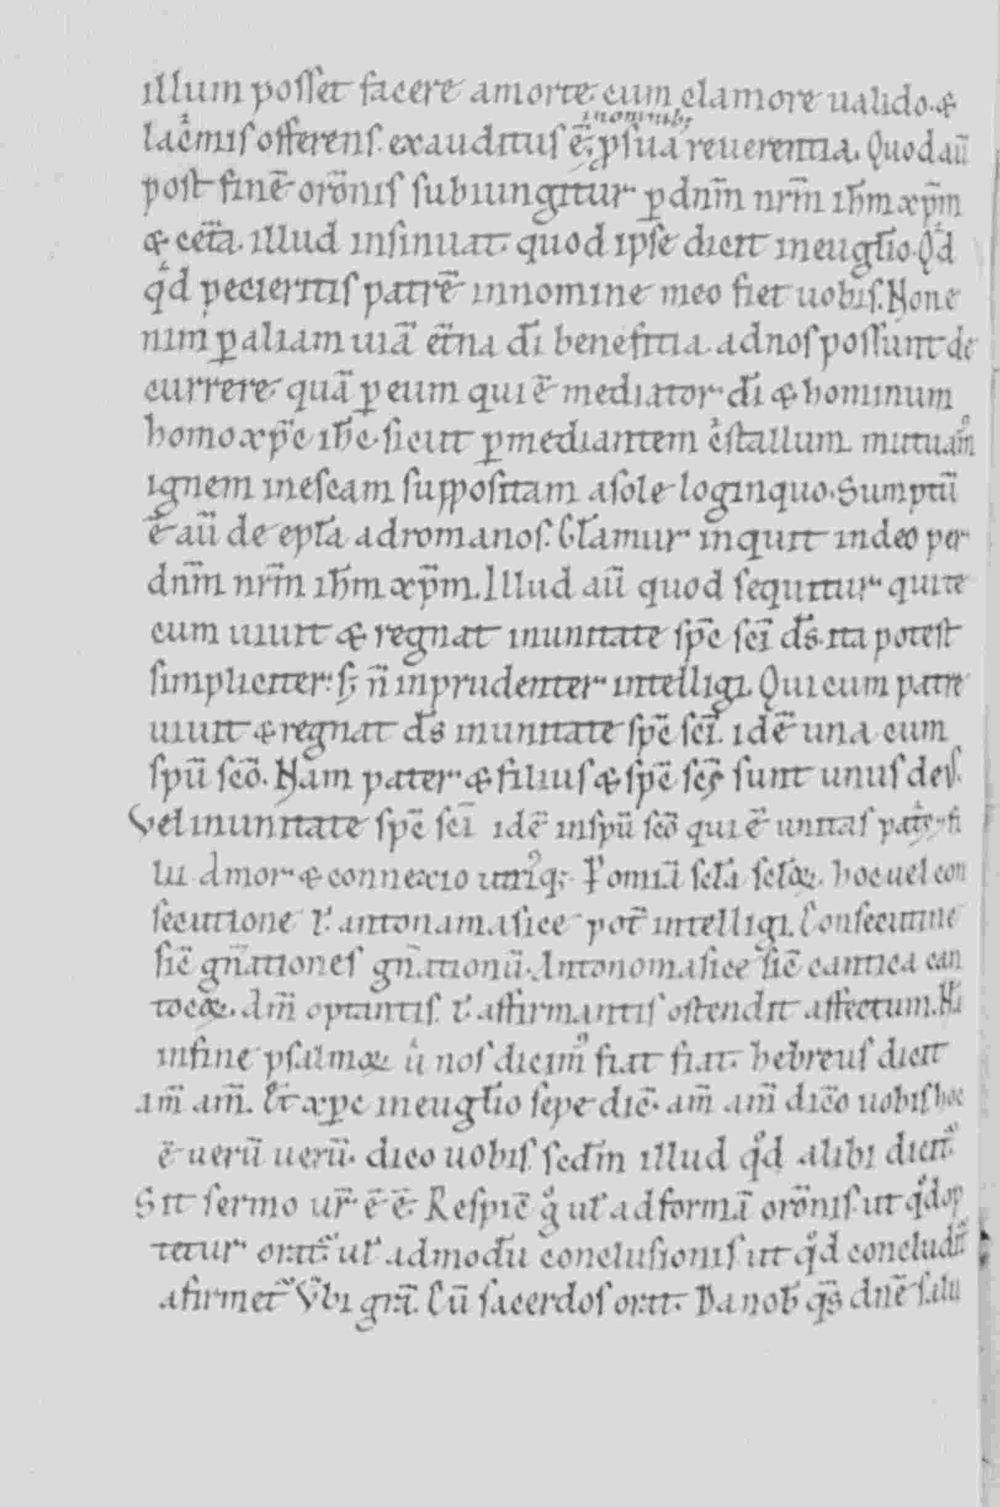 illum posset facere a morte. cum clamore ualido. &
inomnibꝫ
lac̄mis offerens. exauditus ē. ꝓ sua reuerentia. Quod aū
post finē or̄onis subiungitur ꝑ dn̄m nr̄m ih̄m xp̄m
& cet̄a. illud insinuat. quod ipse dicit in eugl̄io. Qͥd
qͥd pecieritis patrē in nomine meo fiet uobis. Non e
nim ꝑ aliam uiā et̄na dī benefitia. ad nos possunt de
currere quā ꝑ eum qui ē mediator dī & hominum
homo xp̄c ih̄c. sicut ꝑ mediantem cͥstallum mutuam᷒
ignem in escam suppositam a sole loginquo. Sumptū
ē aū de epl̄a ad romanos. Gl̄amur inquit in deo per
dn̄m nr̄m ih̄m xp̄m. Illud aū quod sequitur qui te
cum uiuit & regnat in unitate sp̄c sc̄i d̄s. ita potest
simpliciter: sꝫ n̄ inprudenter intelligi. Qui cum patre
uiuit & regnat d̄s in unitate sp̄c sc̄i. idē una cum
spū sc̄o. Nam pater & filius & sp̄c sc̄s sunt unus deus.
Vel in unitate sp̄c sc̄i idē in spū sc̄o qui ē unitas patͥs & fi
lii Amor & connexio utriqꝫ. P̄ omīa sc̄la sc̄loꝝ. hoc uel con
secutione ł antonamasice pot̄ intelligi. Consecutiue
sic̄ gn̄ationes gn̄ationū. Antonomasice sic̄ cantica can
ticoꝝ. Am̄ optantis. ł affirmantis ostendit affectum. Nā
in fine psalmoꝝ uͥ nos dicim᷒ fiat fiat. hebreus dicit
am̄ am̄. Et xp̄c in eugl̄io sepe dic̄. am̄ am̄ dico uobis hoc
ē uerū uerū. dico uobis. sed̄m illud qͦd alibi dicit᷑.
Sit sermo ur̄ ē ē. Respic̄ gͦ ul̄ ad formā or̄onis. ut qͦd op
tetur orat᷑. ul̄ ad modū conclusionis. ut qͦd concludit᷑
afirmet᷑. V̄bi gr̄a. Cū sacerdos orat. Da nob̄ qs̄ dn̄e salu